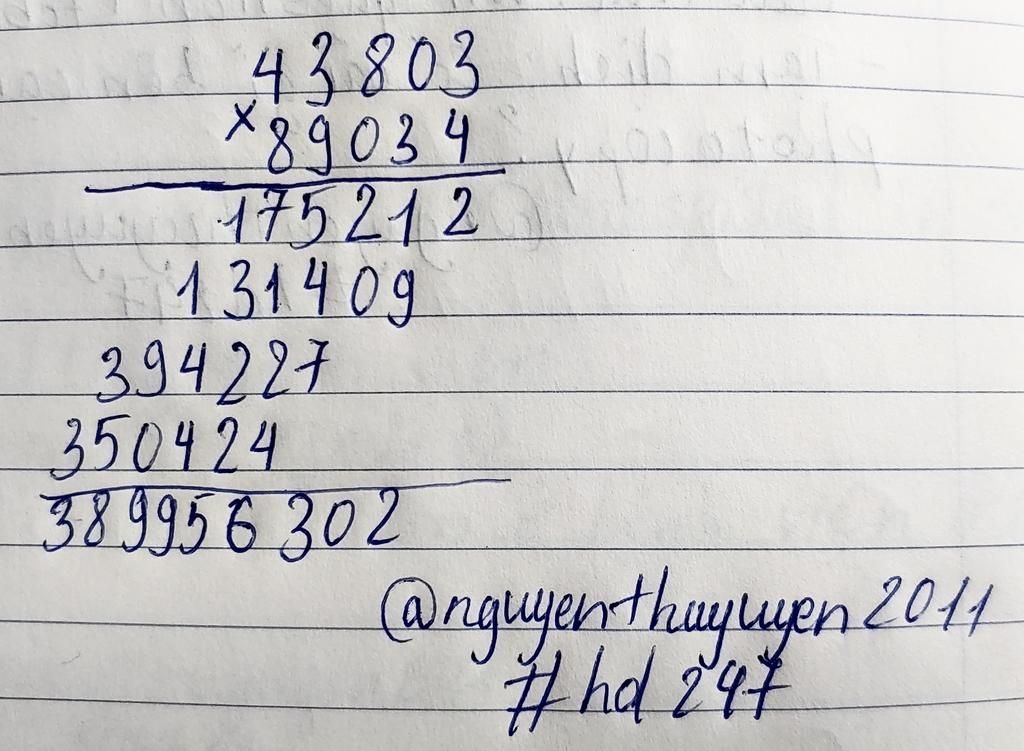 43803
× 89034
175212
131409
394227
350424
389956302
@nguyenthuyuyen2011
#hd247